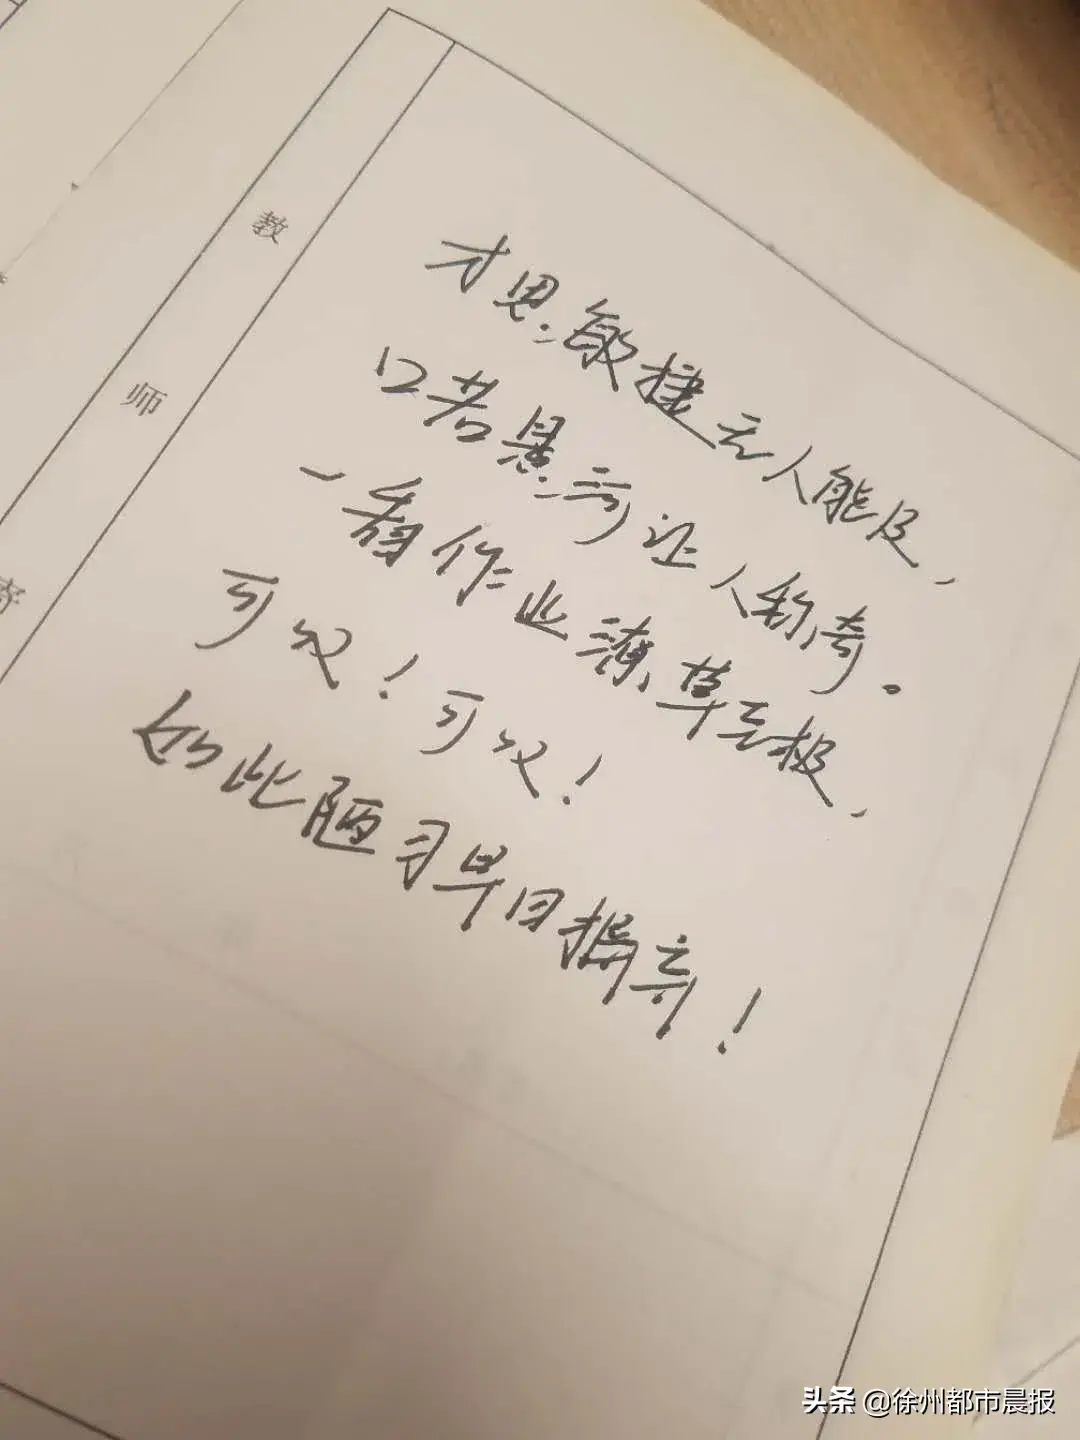 教
师
寄
才思敏捷无人能及，
口若悬河让人称奇。
一看作业潦草至极，
可叹！可叹！
如此陋习早日摒弃！
头条 @徐州都市晨报